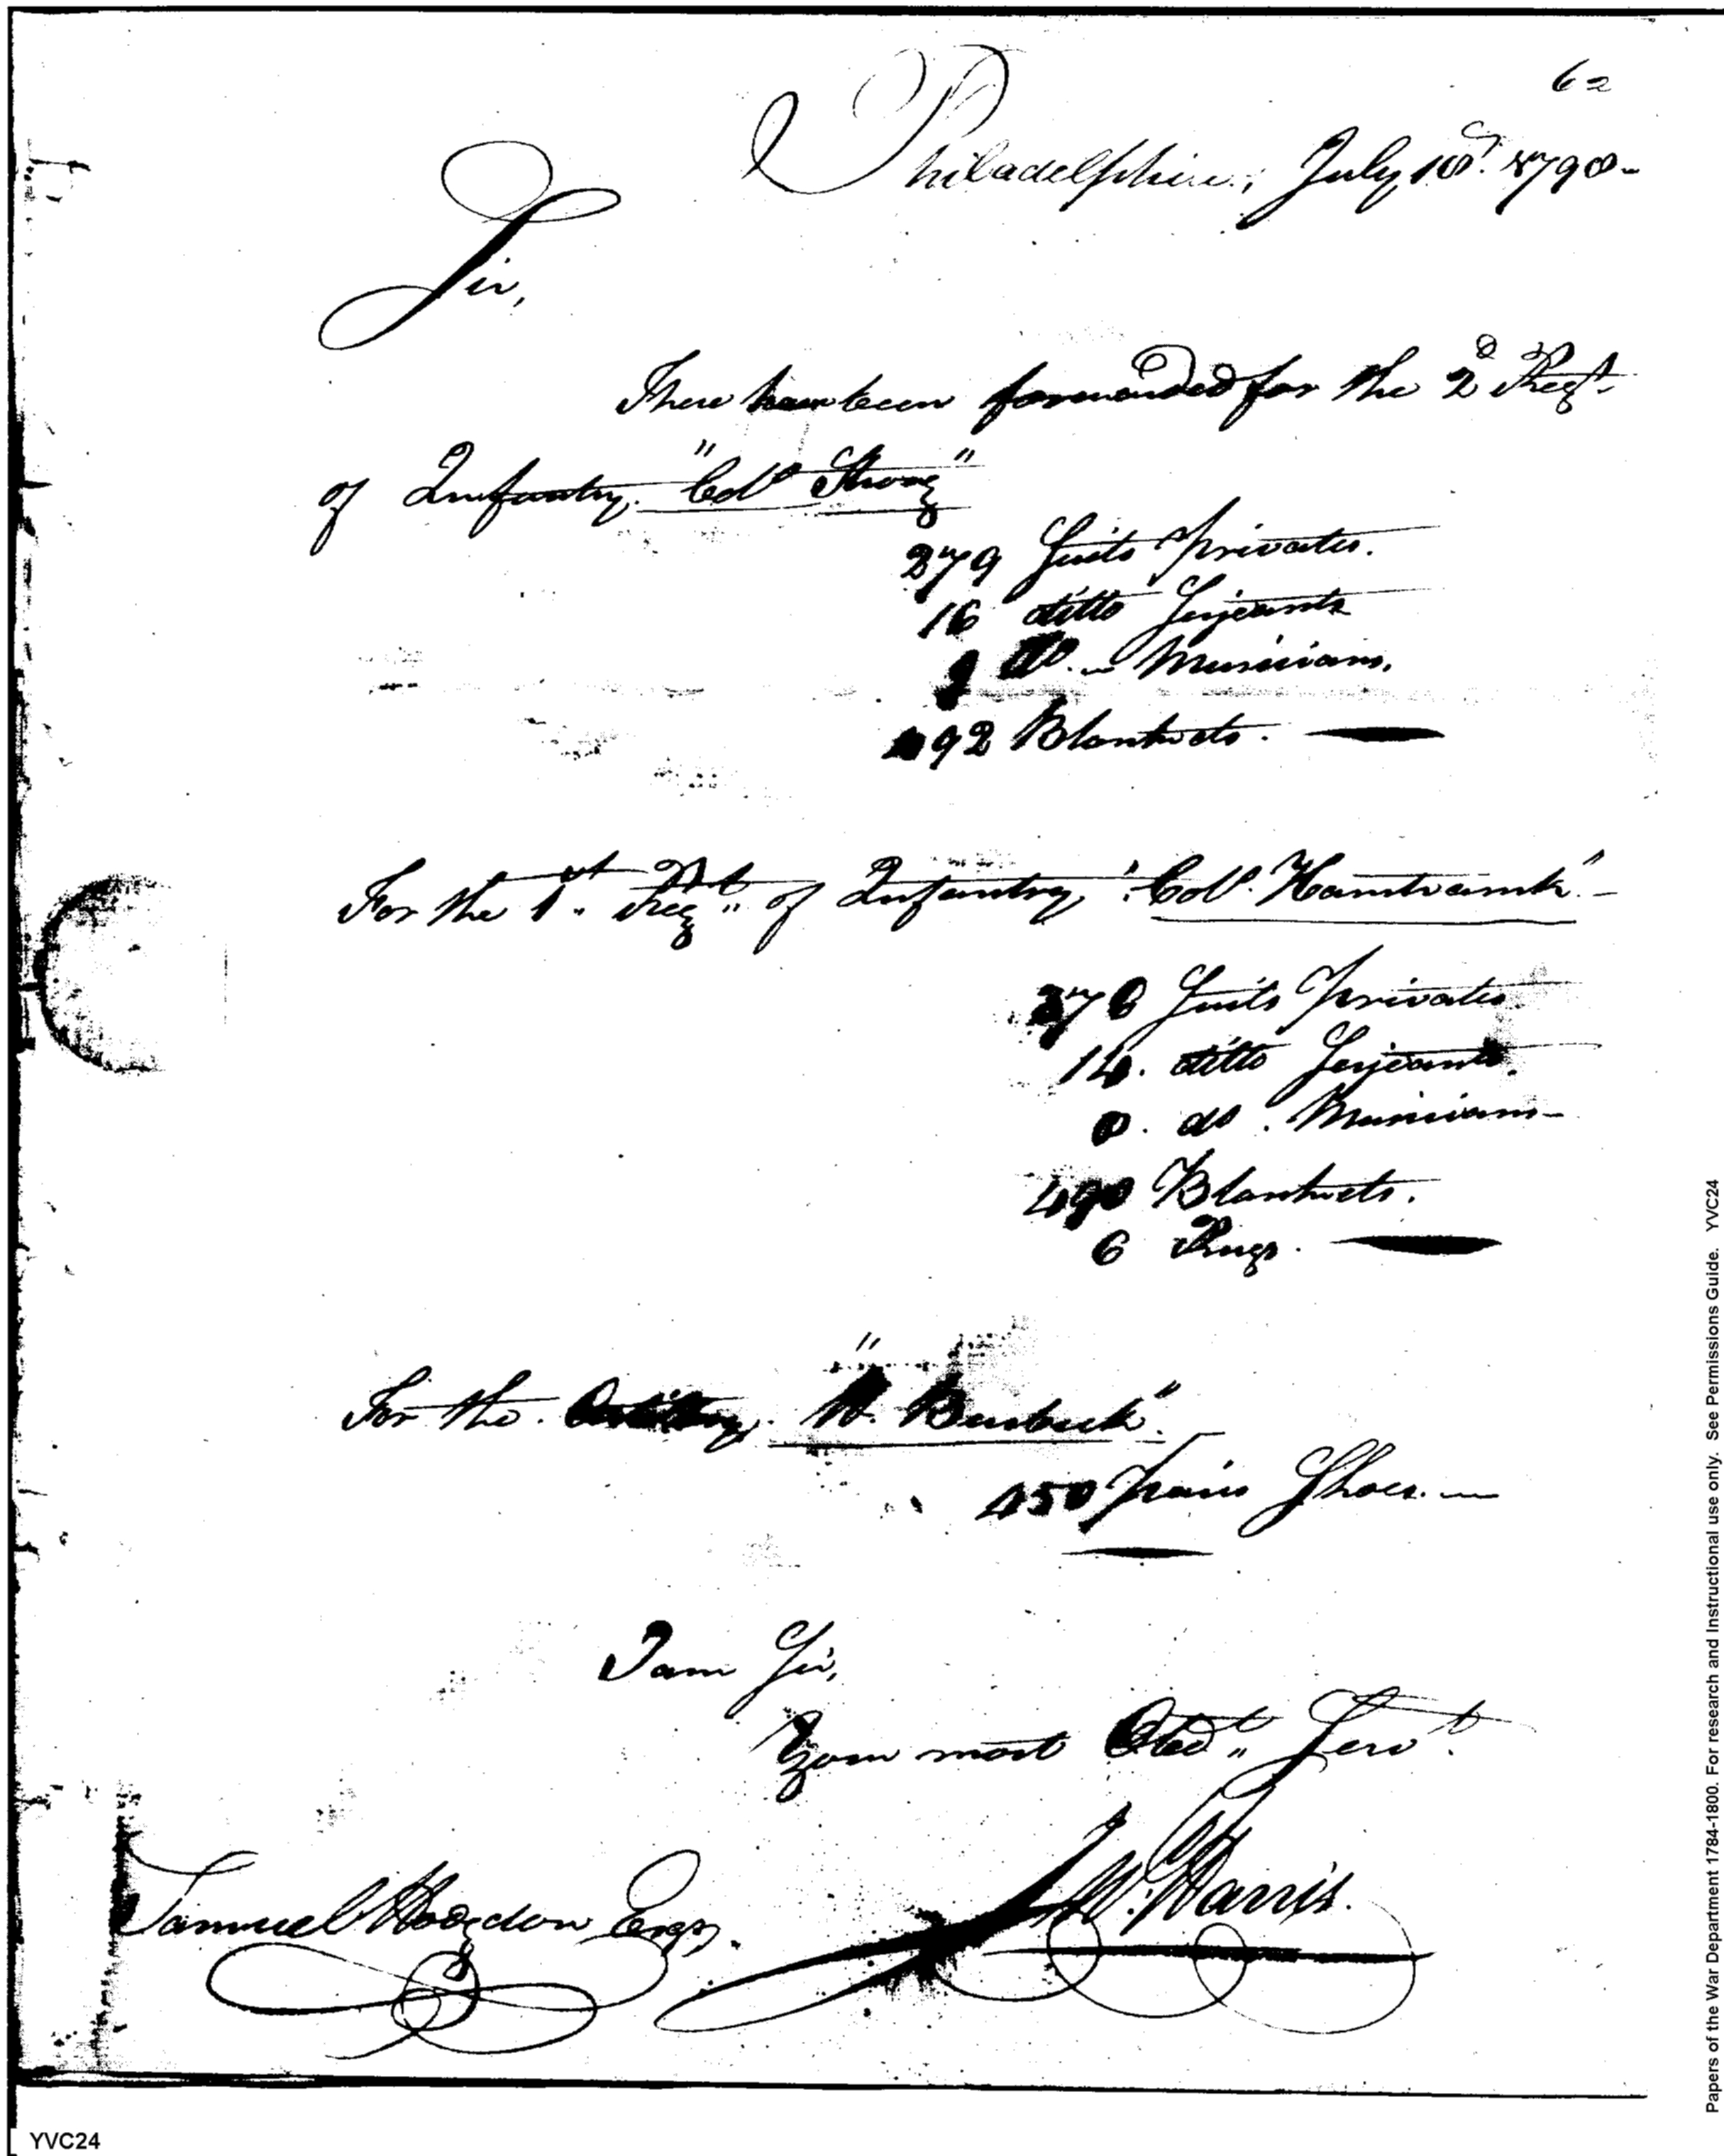 62
Philadelphia, July 10th 1798-
Sir,
There have been forwarded for the 2d Regt.
of Infantry. "Coll Strong"
279 Suits privates.
16 ditto Serjeants
do. - Musicians.
Blankets.
For the 1st Regt" of Infantry, "Coll. Hamtramck" -
Suits privates
14. ditto Serjeants.
do. Musicians-
490 Blankets.
6 Rugs.
For the Artillery. Burbeck".
450 pairs Shoes. -
I am Sir,
Your most Obedt" Servt.
W. Harris.
Samuel Hodgdon Esqr,
Papers of the War Department 1784-1800. For research and Instructional use only. See Permissions Guide. YVC24
YVC24